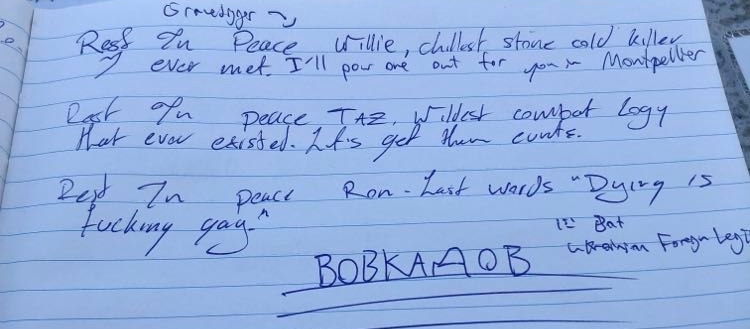 Gravedigger
Rest In Peace Willie, chillest stone cold killer
I ever met. I'll pour one out for you in Montpellier
Rest In peace TAZ, Wildest combat logy
that ever existed. Let's get them cunts.
Rest In peace Ron - Last words "Dying is
fucking gay."
Bat
Ukrainian Foreign Legi
ВОВКАДОВ